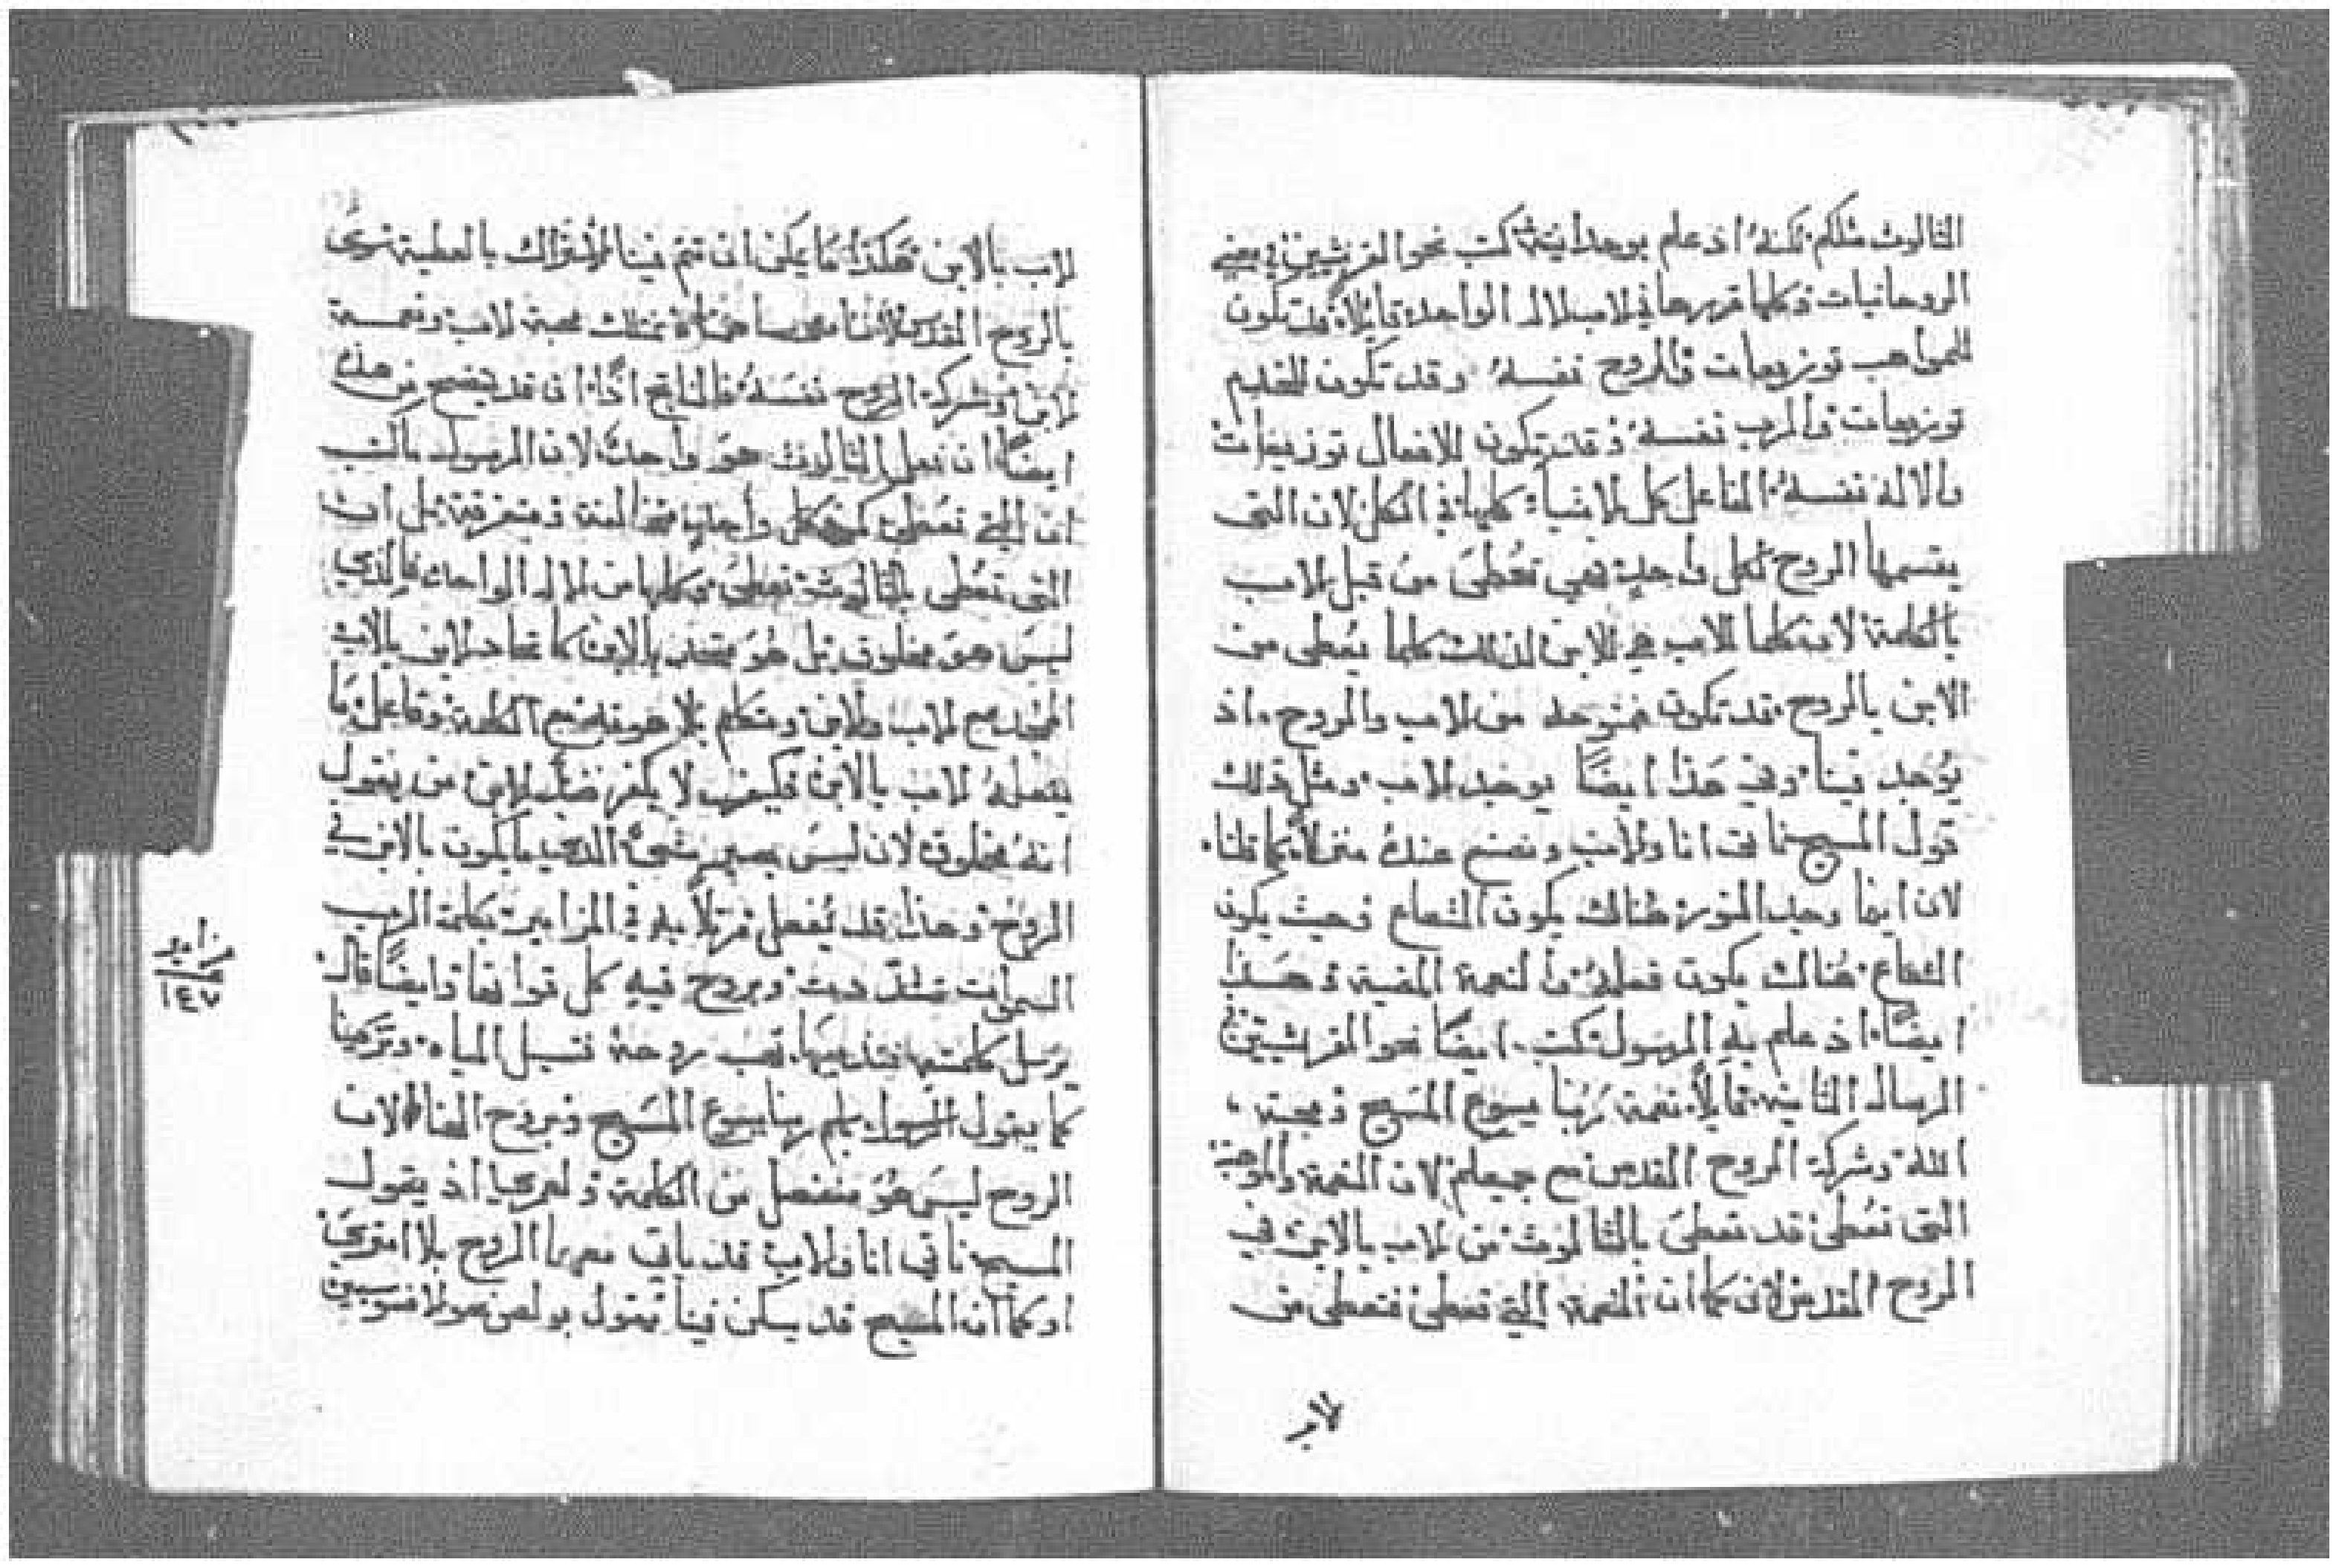 الثالوث مثلكم لكنه اذ علم بوحدانيته كتب نحو القرنثيين في بعض
الروحانيات وكلها قررها في الاب الاله الواحد قايلا قد تكون
للمواهب توزيعات والروح نفسه وقد تكون للخديم
توزيعات والرب نفسه وقد تكون للافعال توزيعات
والاله نفسه الفاعل كل الاشياء كلها في الكل لان التي
يقسمها الروح لكل واحد فهي تعطى من قبل الاب
بالكلمة لان كلما للاب هي للابن لذلك كلما يعطى من
الابن بالروح قد تكون ممنوحه من الاب والروح اذ
يوجد فينا وفي هذا ايضاً يوجد الاب ومثل ذلك
قول المسيح ناتي انا والاب ونصنع عنده منزلاً كما قلنا
لان اينما وجد النور هناك يكون الشعاع وحيث يكون
الشعاع هناك يكون فعله والنعمة المضية وهذا
ايضاً اذ علم به الرسول كتب ايضاً نحو القرنثيين في
الرساله الثانيه قايلاً نعمة ربنا يسوع المسيح ومحبة
الله وشركة الروح القدس مع جميعكم لان النعمة والموهبة
التي تعطى قد تعطى بالثالوث من الاب بالابن في
الروح القدس لان كما ان النعمة التي تعطى فتعطى من
لاب
لاب بالابن هكذا ما يمكن ان تتم فينا الاشتراك بالعطية سوى
بالروح القدس لاننا متى ساهمناه نمتلك محبة لاب ونعمة
لابن وشركة الروح نفسه فالناتج اذاً ان قد يتضح من هذه
ايضاً ان فعل الثالوث هو واحد لان الرسول ما كتب
ان التي تعطى لكل واحد مختلفة ومتفرقة بل ان
التي تعطى بالثالوث تعطى وكلها من الاله الواحد فالذي
ليس هو مخلوق بل هو متحد بالابن كما اتحاد الابن بالاب
الممجد مع لاب والابن ومتكلم بلاهوته مع الكلمة وفاعل ما
يفعله لاب بالابن فكيف لا يكفر ضد الابن من يقول
انه مخلوق لان ليس يصير شيئ الا ويكون بالابن في
الروح وهذا قد يفعل مرتلاً به في المزامير بكلمة الرب
السموات تشددت وبروح فيه كل قواتها وايضاً قال
يرسل كلمته فتذيبها تهب روحه فتسيل المياه وتزكينا
كما يقول الرسول باسم ربنا يسوع المسيح وبروح الهنا لان
الروح ليس هو منفصل من الكلمة ولعمري اذ يقول
المسيح ناتي انا والاب قد ياتي معهما الروح بلا امترى
اذ كما ان المسيح قد يسكن فينا يقول بولص نحو الافسوسيين
مزامير
١٤٧